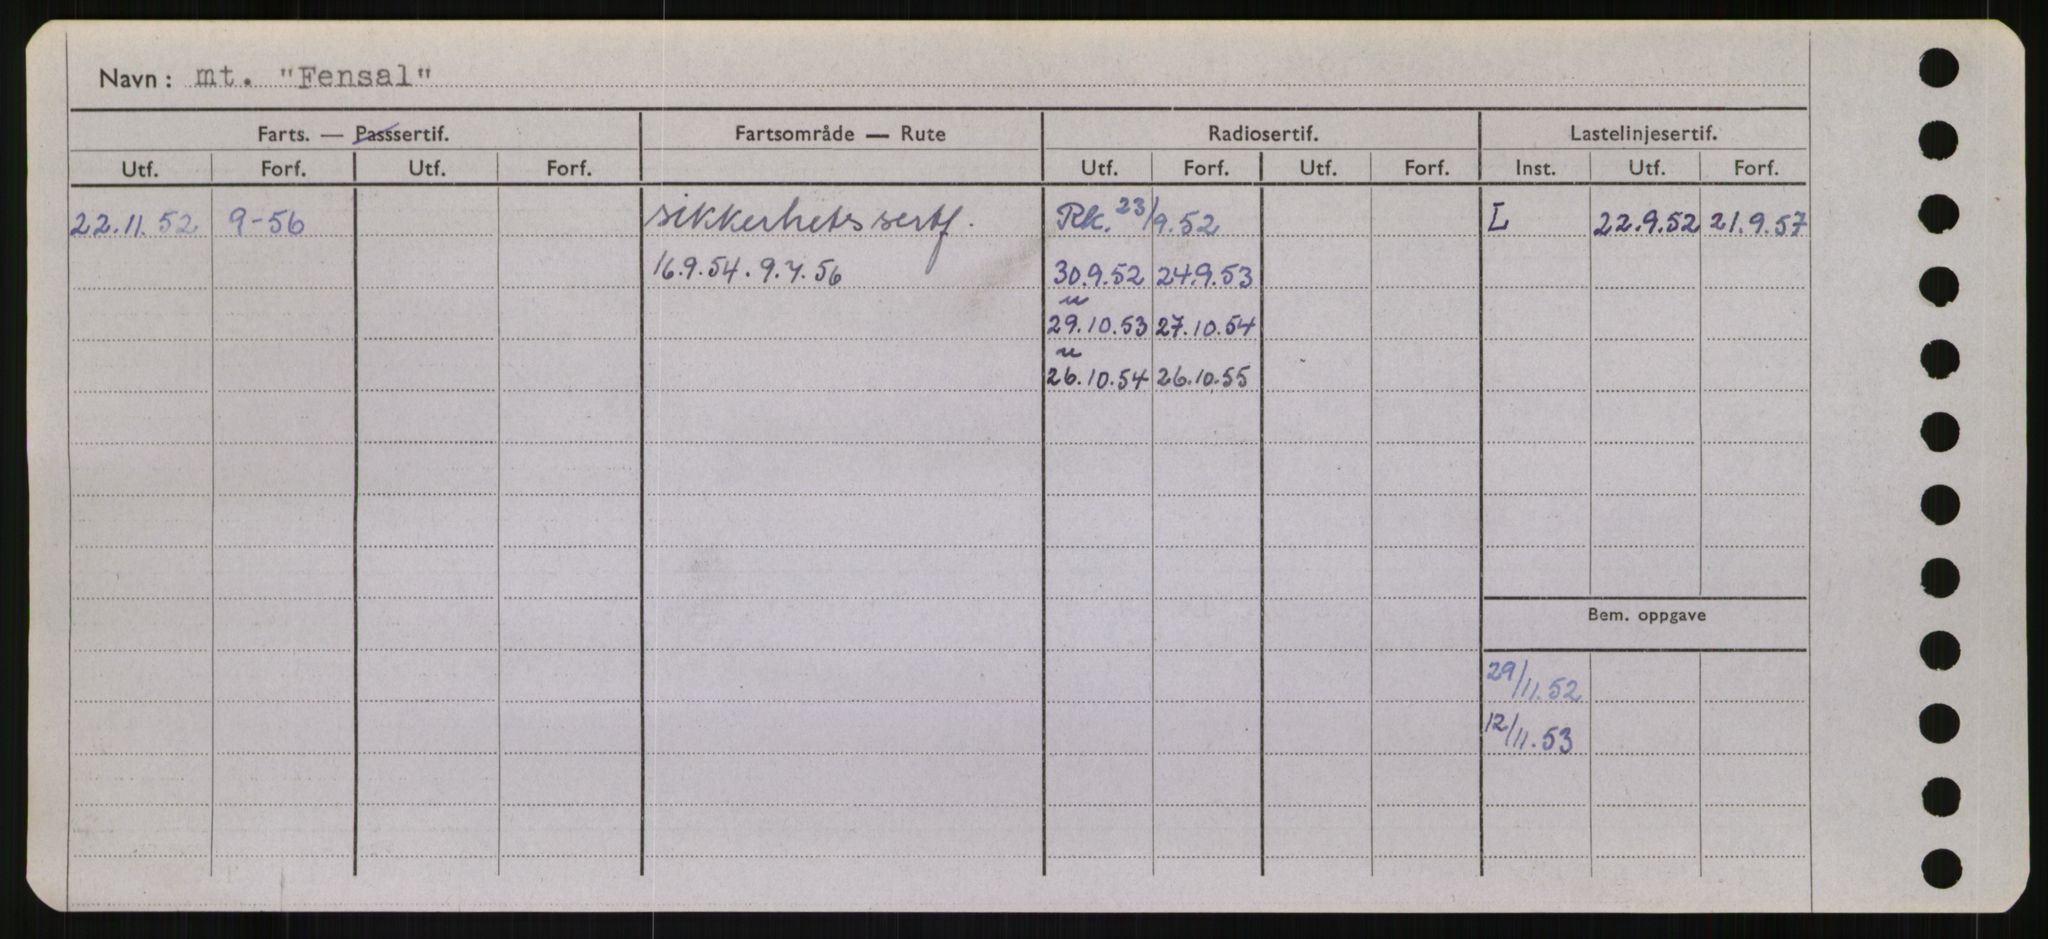 Navn: mt. "Fensal"
Farts. — Passsertif. Fartsområde — Rute Radiosertif. Lastelinjesertif.
Utf. Forf. Utf. Forf. Utf. Forf. Utf. Forf. Inst. Utf. Forf.
22.11.52 9-56 sikkerhetssertf. Rk. 23/9.52 L 22.9.52 21.9.57
16.9.54. 9.7.56 30.9.52 24.9.53
29.10.53 27.10.54
26.10.54 26.10.55
Bem. oppgave
29/11.52
12/11.53